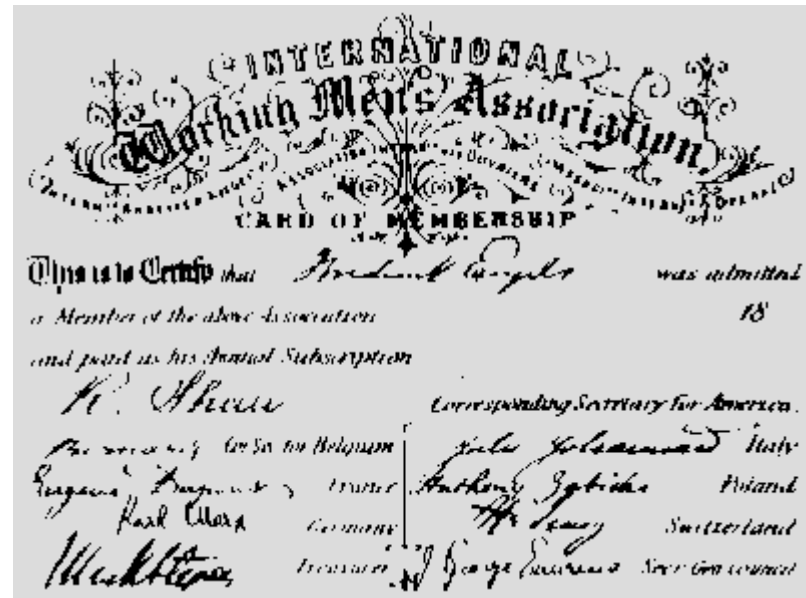 INTERNATIONAL
Working Men's Association
CARD OF MEMBERSHIP
This is to Certify that Frederick Engels was admitted
a Member of the above Association 18
and paid as his Annual Subscription
R. Shaw Corresponding Secretary for America.
Cor. Sec. for Belgium Italy
Eugène Dupont France Anthony Zabicki Poland
Karl Marx Germany H. Jung Switzerland
Treasurer J. George Eccarius Secr. Gen. Council